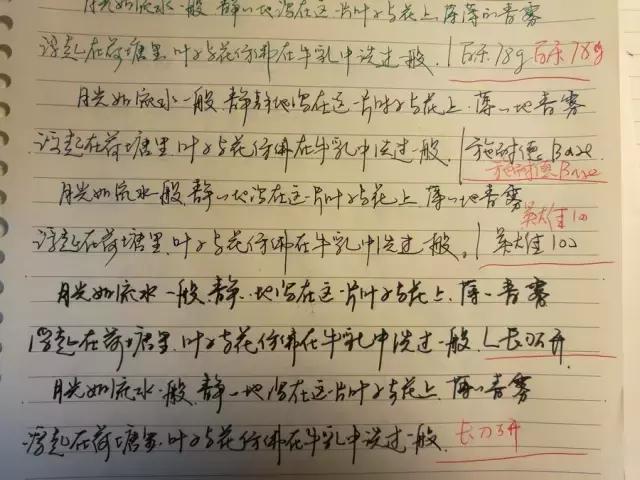 月光如流水一般,静静地泻在这一片叶子与花上,薄薄的青雾
浮起在荷塘里,叶子与花仿佛在牛乳中洗过一般。百乐78g 百乐78g
月光如流水一般,静静地泻在这一片叶子与花上,薄薄地青雾
浮起在荷塘里,叶子与花仿佛在牛乳中洗过一般。施耐德Base
施耐德Base
月光如流水一般,静静地泻在这一片叶子与花上,薄薄地青雾
英雄100
浮起在荷塘里,叶子与花仿佛在牛乳中洗过一般。英雄100
月光如流水一般,静静地泻在这一片叶子与花上,薄薄青雾
浮起在荷塘里,叶子与花仿佛在牛乳中洗过一般。长刀研
月光如流水一般,静静地泻在这一片叶子与花上,薄薄青雾
浮起在荷塘里,叶子与花仿佛在牛乳中洗过一般。长刀研